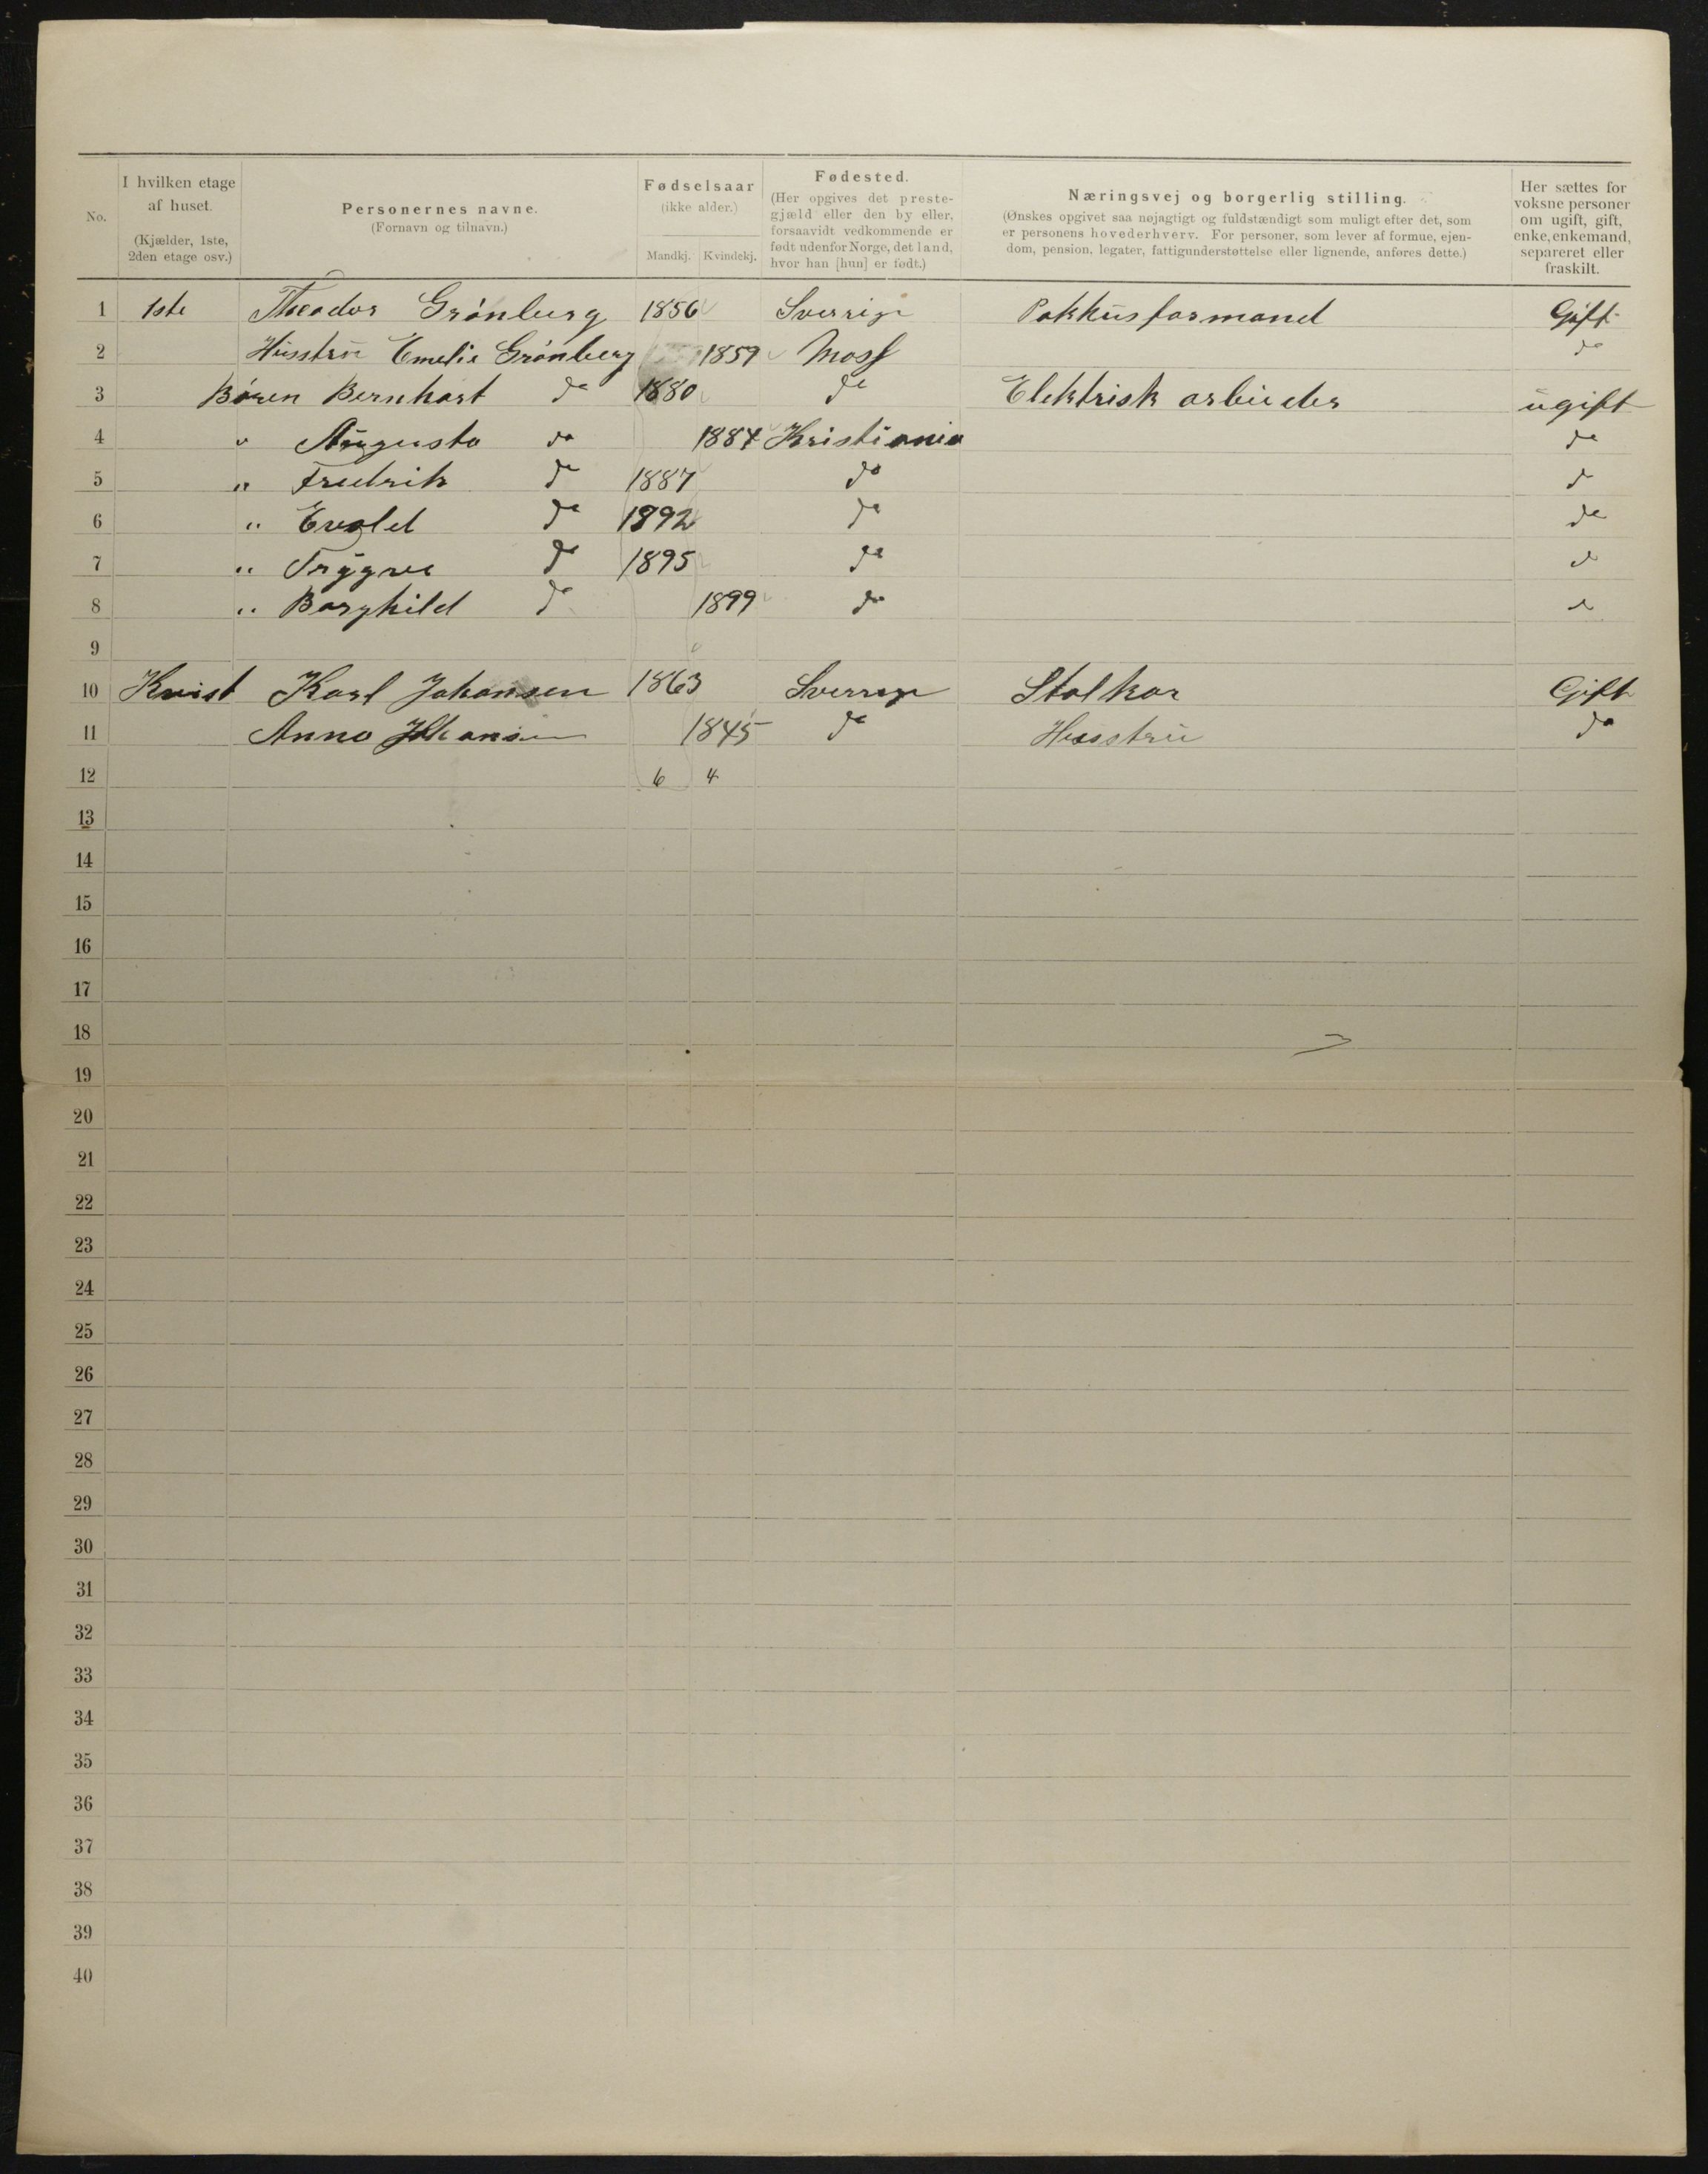 No.
I hvilken etage af huset. (Kjælder, 1ste, 2den etage osv.)
Personernes navne. (Fornavn og tilnavn.)
Fødselsaar (ikke alder.) Mandkj. Kvindekj.
Fødested. (Her opgives det prestegjæld eller den by eller, forsaavidt vedkommende er født udenfor Norge, det land, hvor han [hun] er født.)
Næringsvej og borgerlig stilling. (Ønskes opgivet saa nøjagtigt og fuldstændigt som muligt efter det, som er personens hovederhverv. For personer, som lever af formue, ejendom, pension, legater, fattigunderstøttelse eller lignende, anføres dette.)
Her sættes for voksne personer om ugift, gift, enke, enkemand, separeret eller fraskilt.
1 1ste Theodor Grönberg 1856 Sverrige Pakhusformand Gift
2 Husstru Emelie Grönberg 1859 Moss do
3 Børen Bernhart do 1880 do Elektrisk arbeider ugift
4 " Augusta do 1884 Kristiania do
5 " Fredrik do 1887 do do
6 " Evald do 1892 do do
7 " Trygve do 1895 do do
8 " Borghild do 1899 do do
9
10 Kvist Karl Johansen 1863 Sverrige Stalkar Gift
11 Anna Johansen 1845 do Husstru do
12 6 4
13
14
15
16
17
18
19
20
21
22
23
24
25
26
27
28
29
30
31
32
33
34
35
36
37
38
39
40